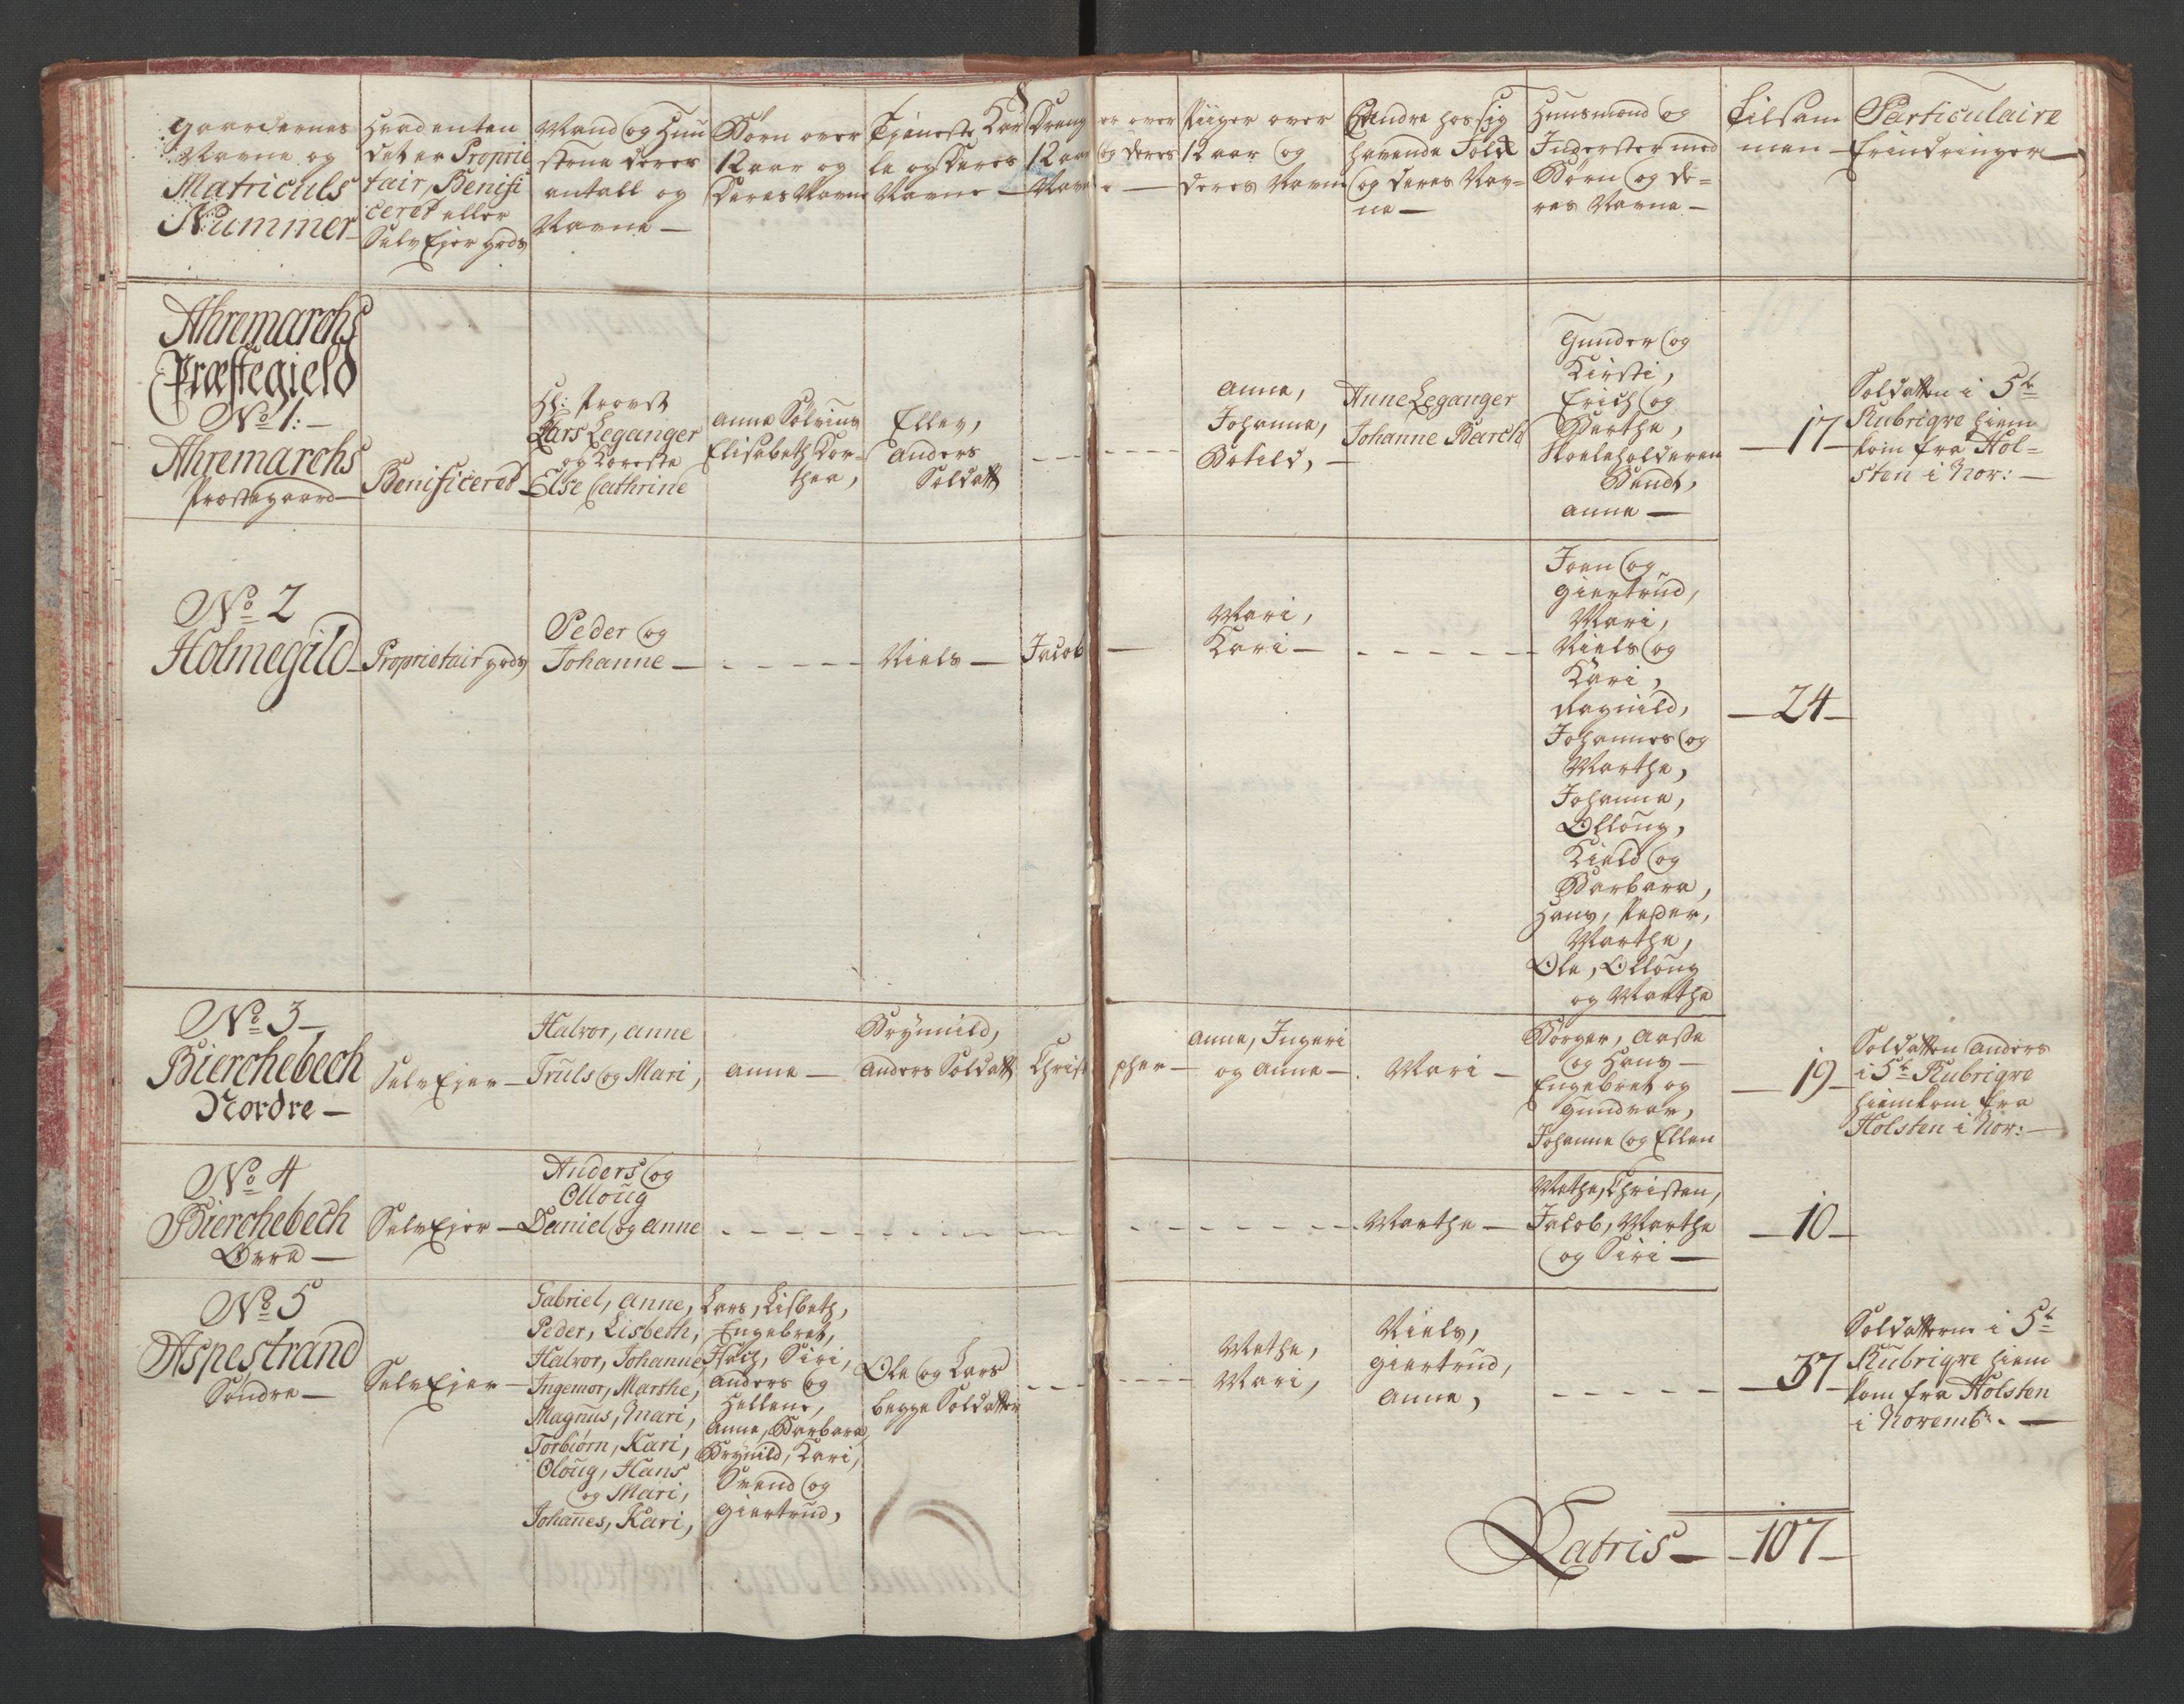 8
Gaardernes
Navne og
Matriculs
Nummer
Hvad enten
det er Proprie
tair, Benifi
ceret eller
Selv Ejer gods
Mand og Hu
strue deres
antall og
Navne —
Børn over
12 aar og
deres Navne
Tjeneste Kar
le og deres
Navne —
Dreng
12 aar
Navn
er over
og deres
e —
Piiger over
12 aar og
deres Navne
Andre hos sig
havende Folk
og deres Nav=
ne —
Huusmænd og
Inderster med
Børn og de=
res Navne —
Tilsam
men —
Particulaire
Erindringer —
Ahremarchs
Præstegield
No 1: —
Ahremarchs
Præstegaard —
Benificeret —
Hr: Provst
Lars Leganger
og Kæreste
Else Cathrine
Anna
Elisabeth Dor=
thea,
Ellev,
Anders
Soldatt
Anna,
Johanna,
Botild, —
Anne Leganger
Johanne Barch
Gunder og
Kirsti,
Erich og
Berthe,
Skoeleholderen
Bendt,
Anna —
— 17 —
Soldatten i 5te
Rubriqve hiem
kom fra Hol=
sten i Nov: —
No 2
Holmegild —
Proprietair gods
Peder og
Johanne —
Niels —
Jacob —
Mari,
Kari —
Joen og
Giertrud,
Mari,
Niels og
Kari,
Ragnild,
Johannes og
Marthe,
Johanna,
Olloug,
Kield og
Barbara,
Hans, Peder,
Marthe,
Ole, Olloug
og Marthe
— 24 —
No 3 —
Bierchebech
Nordre —
Selv Ejer —
Halvor, Anne
Truls og Mari,
Anna —
Brynnild,
Anders Soldatt
Christ
pher —
Anna, Ingeri
og Anna —
Mari —
Børger, Aasse
og Hans —
Engebret og
Gundvor,
Johanna og Ellen
— 19 —
Soldatten Anders
i 5te Rubriqve
hiemkom fra
Holsten i Nov: —
No 4
Bierchebech
Øvre —
Selv Ejer —
Anders og
Olloug
Daniel og Anne
Marthe —
Mathe, Christen,
Jacob, Marthe
og Siri —
— 10 —
No 5
Aspestrand
Søndre —
Selv Ejer —
Gabriel, Anne,
Peder, Lisbeth,
Halvor, Johanne
Ingemor, Marthe,
Magnus, Mari,
Torbiørn, Kari,
Oloug, Hans
og Mari,
Johannes, Kari,
Lars, Lisbeth,
Engebret,
Siri,
Anders og
Hellene,
Anna, Barbara,
Brynild, Kari,
Svend og
Giertrud,
Ole og Lars
begge Soldatter
Mathe,
Mari,
Niels,
Giertrud,
Anna,
— 37 —
Soldatterne i 5te
Rubriqve hiem
kom fra Holsten
i Novembr. —
Latris — — 107 —